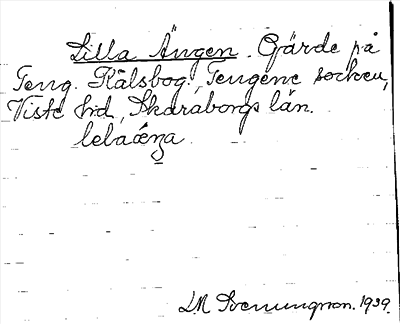 Lilla Ängen. Gärde på
Teng. Kålsbog., Tengene socken,
Viste hd, Skaraborgs län.
lelaæŋa
LM Svenungson. 1939.